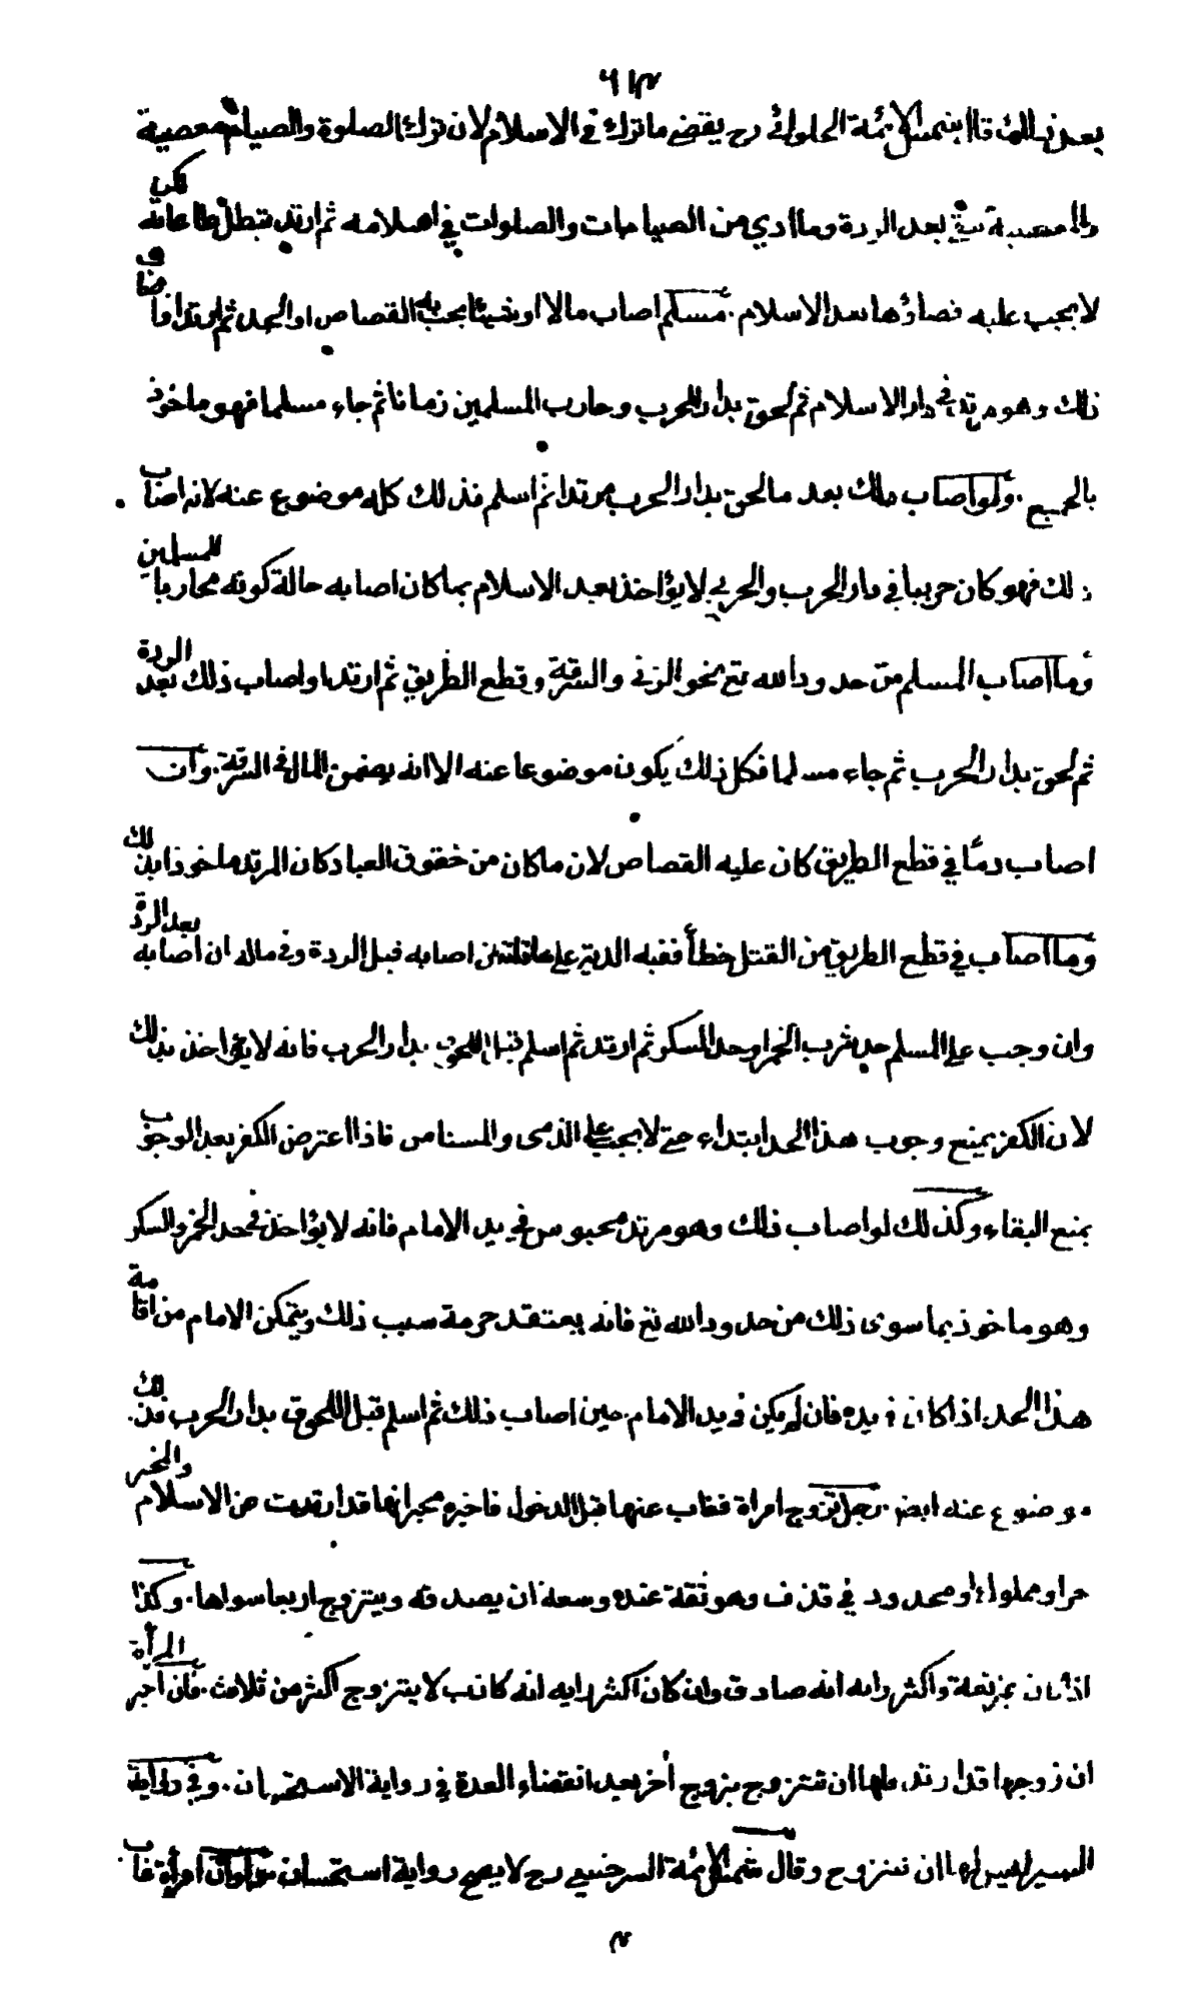 ٦١٣
بعد ذلك قال شمس الائمة الحلوائي رح يقضي ما ترك في الاسلام لان ترك الصلوة والصيام معصية
والمعصية تبقى بعد الردة وما ادي من الصيامات والصلوات في اسلامه ثم ارتد تبطل طاعاته لكن
لا يجب عليه قضاؤها بعد الاسلام . مسلم اصاب مالا او شيئا يجب به القصاص او الحد ثم ارتد او اصاب
ذلك وهو مرتد في دار الاسلام ثم لحق بدار الحرب وحارب المسلمين زمانا ثم جاء مسلما فهو ماخوذ
بالجميع . ولو اصاب ذلك بعد ما لحق بدار الحرب مرتدا ثم اسلم فذلك كله موضوع عنه لانه اصاب
ذلك فهو كان حربيا في دار الحرب والحربي لا يؤاخذ بعد الاسلام بما كان اصابه حالة كونه محاربا للمسلمين
وما اصاب المسلم من حدود الله تع نحو الزنى والسرقة وقطع الطريق ثم ارتد او اصاب ذلك بعد الردة
ثم لحق بدار الحرب ثم جاء مسلما فكل ذلك يكون موضوعا عنه الا انه يضمن المال في السرقة . وان
اصاب دما في قطع الطريق كان عليه القصاص لان ما كان من حقوق العباد كان المرتد ماخوذا بذلك
وما اصاب في قطع الطريق من القتل خطأ ففيه الدية على عاقلته ان اصابه قبل الردة وفي ماله ان اصابه بعد الردة
وان وجب على المسلم حد شرب الخمر او حد السكر ثم ارتد ثم اسلم قبل اللحوق بدار الحرب فانه لا يؤاخذ بذلك
لان الكفر يمنع وجوب هذا الحد ابتداء حتى لا يجب على الذمى والمستامن فاذا اعترض الكفر بعد الوجوب
يمنع البقاء وكذلك لو اصاب ذلك وهو مرتد محبوس في يد الامام فانه لا يؤاخذ في حد الخمر والسكر
وهو ماخوذ بما سوى ذلك من حدود الله تع فانه يعتقد حرمة سبب ذلك ويتمكن الامام من اقامة
هذا الحد اذا كان في يده فان لم يكن في يد الامام حين اصاب ذلك ثم اسلم قبل اللحوق بدار الحرب فذلك
موضوع عنه ايض . رجل تزوج امراة فغاب عنها قبل الدخول فاخبره مخبر انها قد ارتدت عن الاسلام والمخبر
حر او مملوك او محدود في قذف وهو ثقة عنده وسعه ان يصدقه ويتزوج اربعا سواها . وكذا
اذا كان غير ثقة واكثر رايه انه صادق وان كان اكثر رايه انه كاذب لا يتزوج اكثر من ثلاث . فان اخبر المرأة
ان زوجها قد ارتد فلها ان تتزوج بزوج آخر بعد انقضاء العدة في رواية الاستحسان . وفي رواية
السير ليس لها ان تتزوج وقال شمس الائمة السرخسي رح لا يصح رواية استحسان امرأة غاب